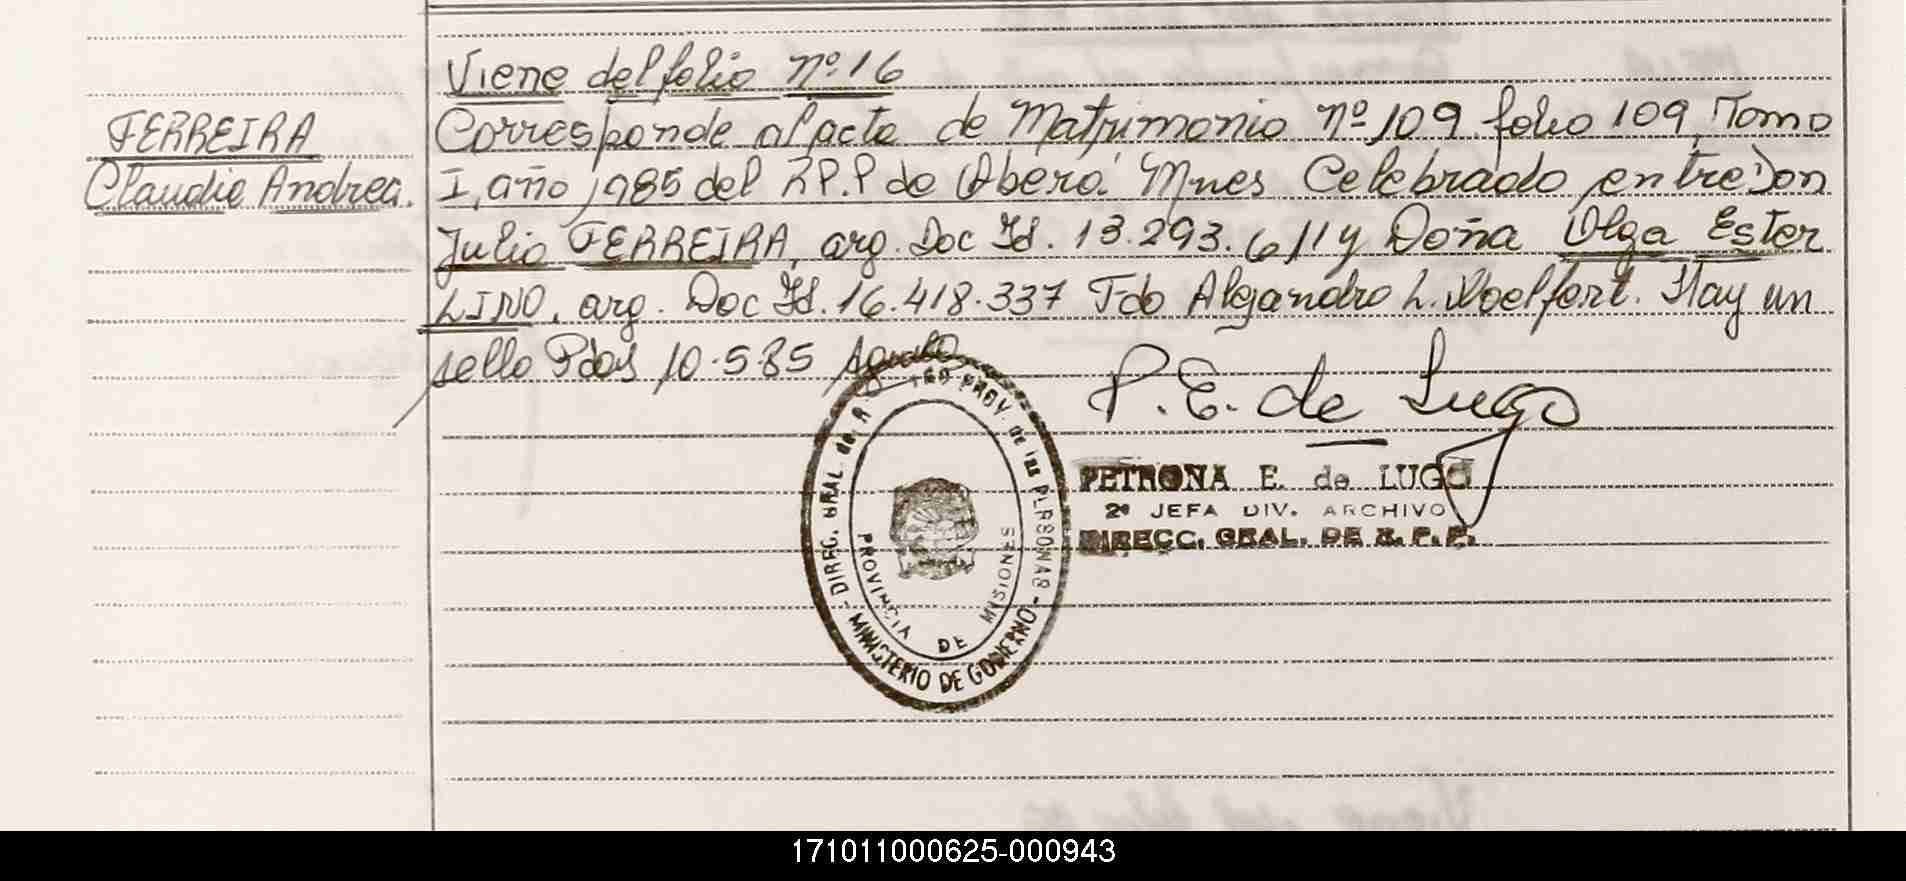 Viene del folio nº 16
FERREIRA
Claudia Andrea.
Corresponde al acta de Matrimonio nº 109 folio 109, Tomo
I, año 1985 del R.P.P de Oberá Mnes Celebrado entre Don
Julio FERREIRA, arg. Doc Id. 13.293.611 y Doña Olga Ester
LINO, arg. Doc Id. 16.418.337 Fdo Alejandro L. Hay un
sello Pdas 10.5.85
P. E. de Lugo
PETRONA E. de LUGO
2º JEFA DIV. ARCHIVO
DIRECC. GRAL. DE R. P. P.
DIREC. GRAL de PROV. de las PERSONAS
PROVINCIA DE MISIONES
MINISTERIO DE GOBIERNO
171011000625-000943